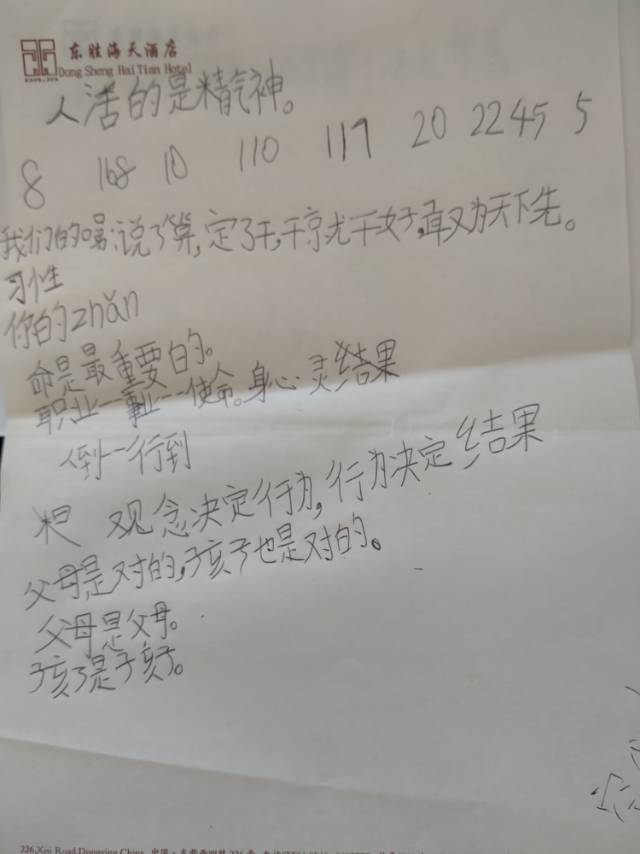 东胜海天酒店
Dong Sheng HaiTian Hotel
人活的是精气神。
8 168 10 110 119 20 22 45 5
我们的 说了算,定了干,干就干好,敢为天下先。
习性
你的zhǎn
命是最重要的。
职业一事业一使命。身心灵结果
行到
观念决定行为,行为决定结果
父母是对的,孩子也是对的。
父母是父母。
孩子是孩子。
226,Xisi Road Dongying China